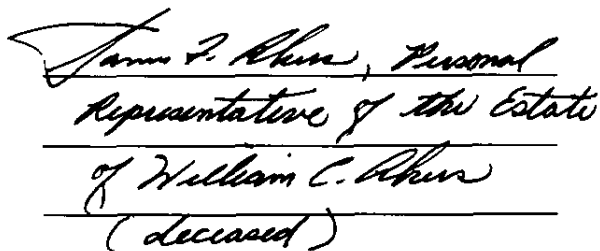 James F. Akers, Personal
Representative of the Estate
of William C. Akers
(deceased)